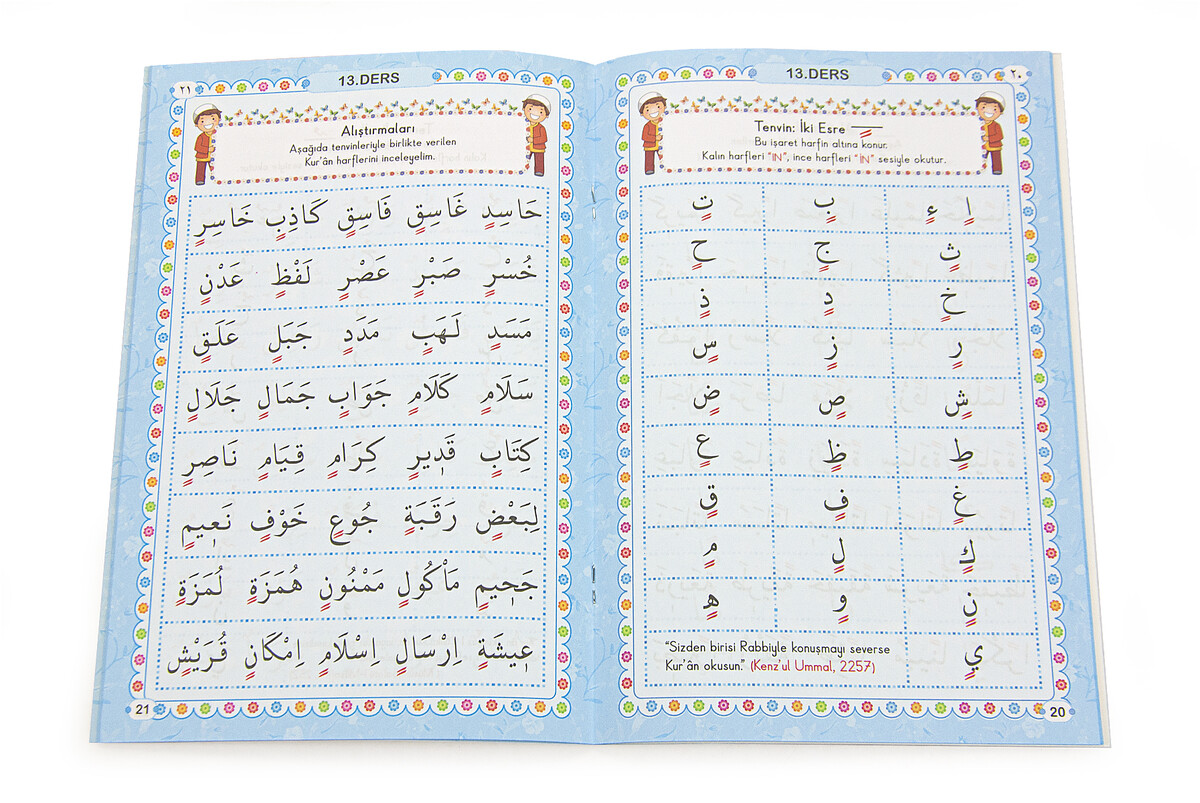 13.DERS ٢٠
Tenvin: İki Esre
Bu işaret harfin altına konur.
Kalın harfleri "IN", ince harfleri "İN" sesiyle okutur.
اٍ ءٍ بٍ تٍ
ثٍ جٍ حٍ
خٍ دٍ ذٍ
رٍ زٍ سٍ
شٍ صٍ ضٍ
طٍ ظٍ عٍ
غٍ فٍ قٍ
كٍ لٍ مٍ
نٍ وٍ هٍ
يٍ
"Sizden birisi Rabbiyle konuşmayı severse
Kur'ân okusun." (Kenz'ul Ummal, 2257)
20
٢١ 13.DERS
Alıştırmaları
Aşağıda tenvinleriyle birlikte verilen
Kur'ân harflerini inceleyelim.
حَاسِدٍ غَاسِقٍ فَاسِقٍ كَاذِبٍ خَاسِرٍ
خُسْرٍ صَبْرٍ عَصْرٍ لَفْظٍ عَدْنٍ
مَسَدٍ لَهَبٍ مَدَدٍ جَبَلٍ عَلَقٍ
سَلَامٍ كَلَامٍ جَوَابٍ جَمَالٍ جَلَالٍ
كِتَابٍ قَدٖيرٍ كِرَامٍ قِيَامٍ نَاصِرٍ
لِبَعْضٍ رَقَبَةٍ جُوعٍ خَوْفٍ نَعٖيمٍ
جَحٖيمٍ مَاْكُولٍ مَمْنُونٍ هُمَزَةٍ لُمَزَةٍ
عٖيشَةٍ اِرْسَالٍ اِسْلَامٍ اِمْكَانٍ قُرَيْشٍ
21